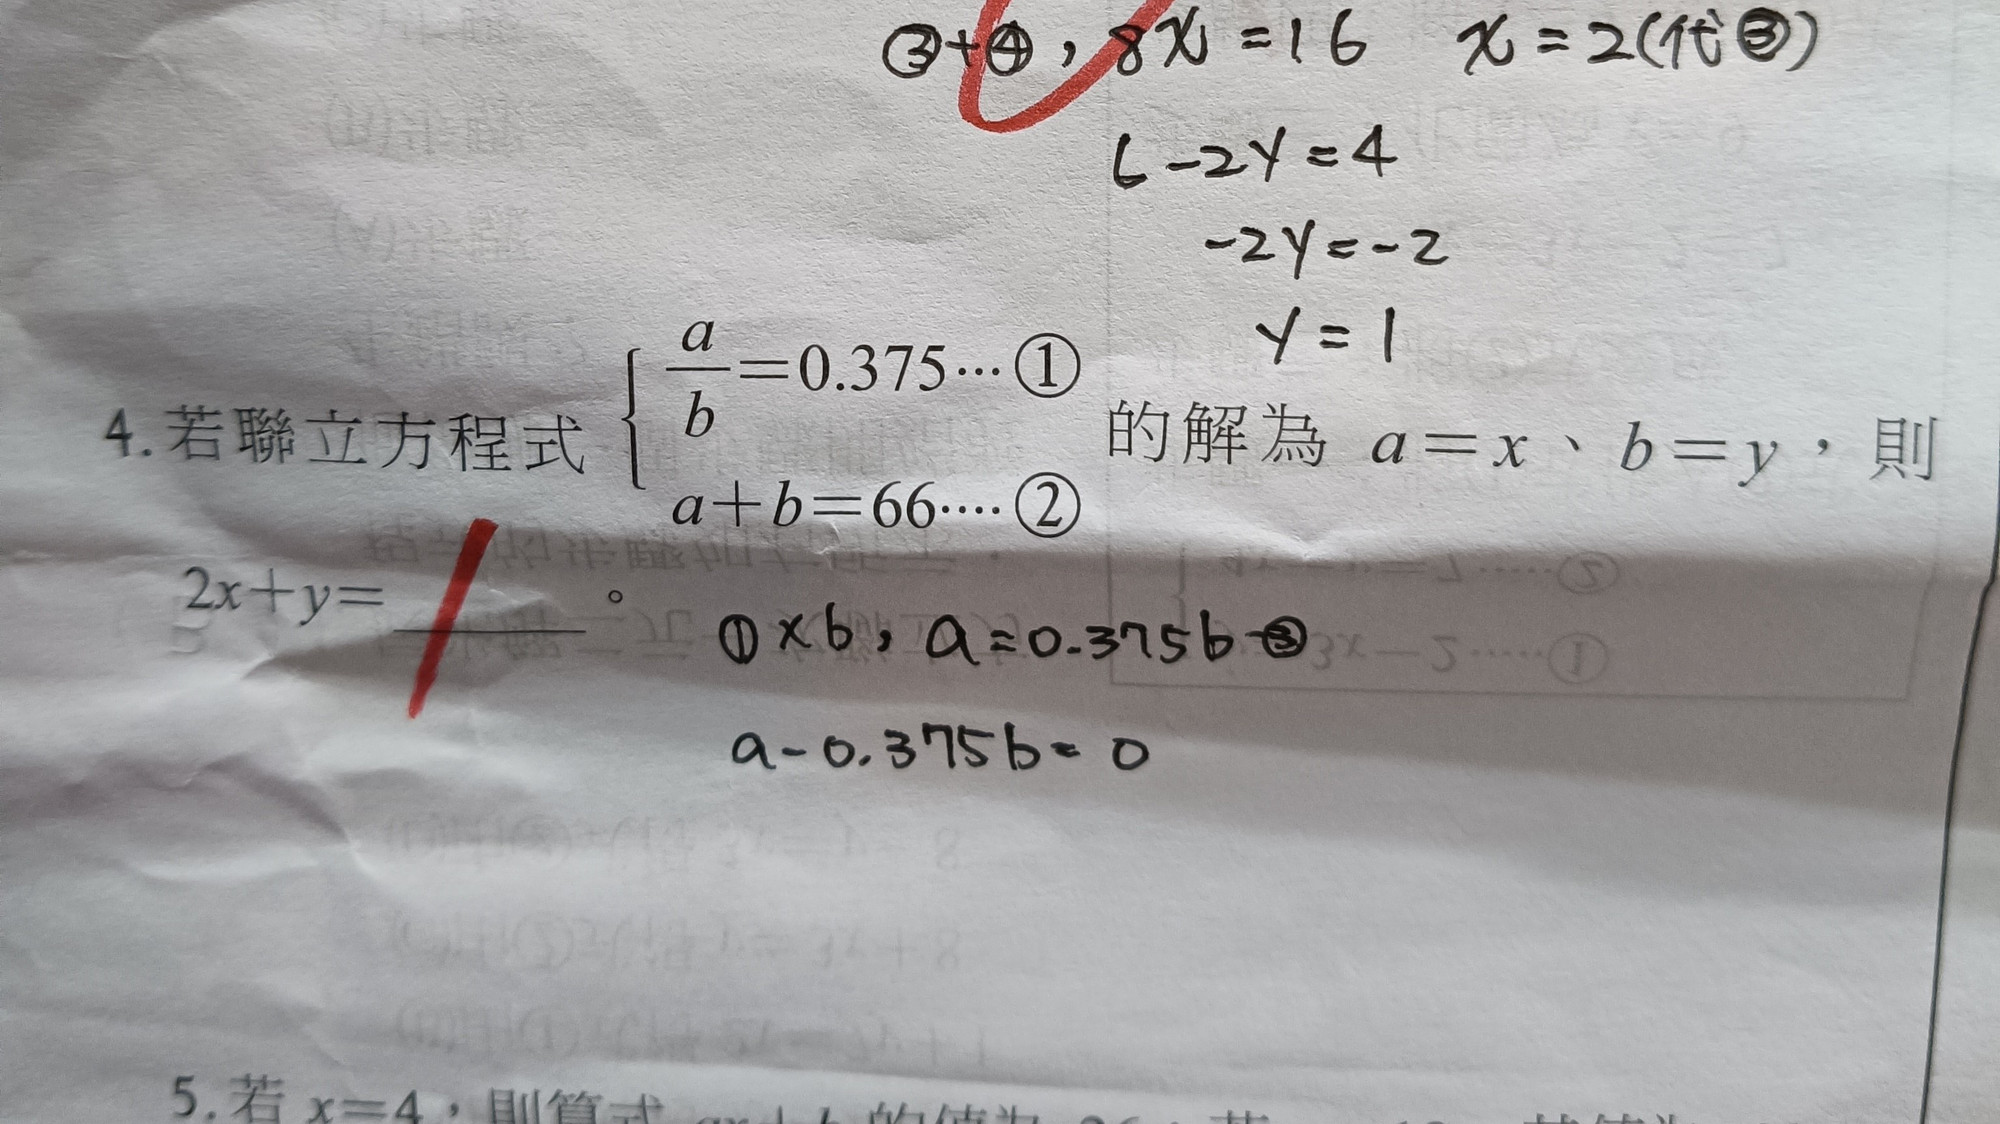 ③+④，8x=16 x=2(代③)
6-2y=4
-2y=-2
y=1
4. 若聯立方程式 { a/b=0.375…① a+b=66….② 的解為 a=x、b=y，則
2x+y=______。
①×b，a=0.375b-③
a-0.375b=0
5. 若 x=4，則算式 ax+b 的值為